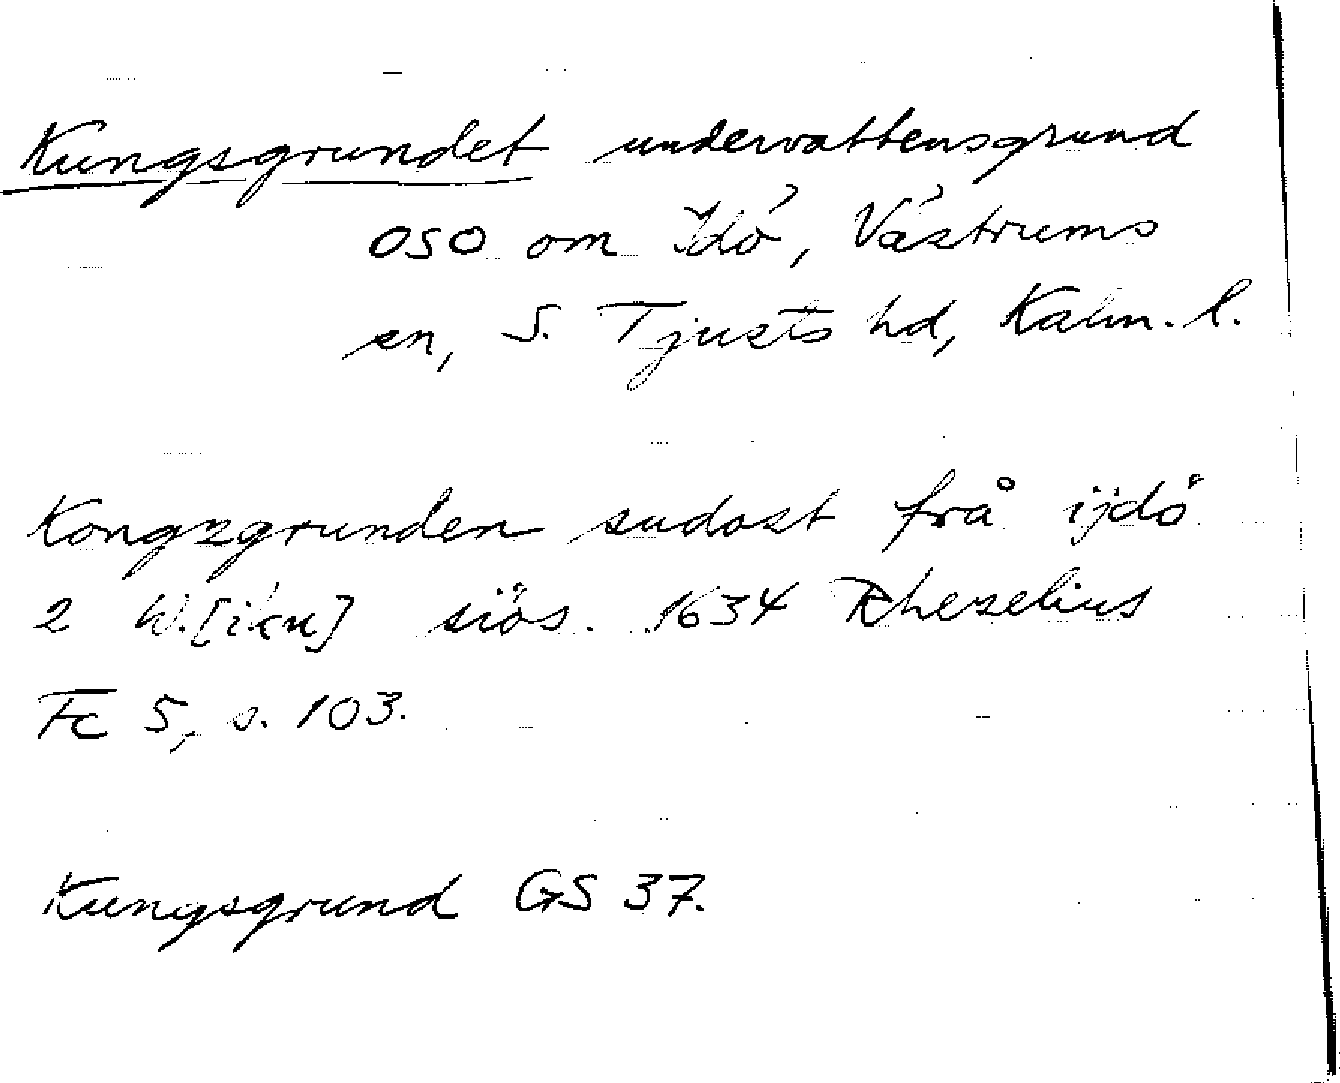 Kungsgrundet undervattensgrund
OSO om Idö, Västrums
sn, S. Tjusts hd, Kalm. l.
Kongzgrunden sudost frå ijdö
2 W.[ikn] siös. 1634 Rhezelius
Fc 5, s. 103.
Kungsgrund GS 37.